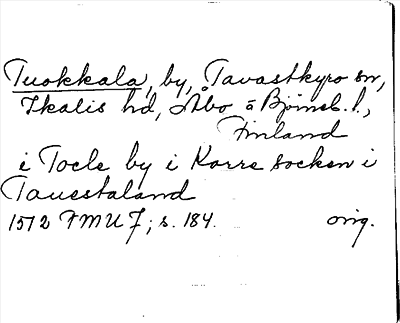 Tuokkala, by, Tavastkyro sn,
Ikalis hd, Åbo o Bjömeb. l.,
Finland
i Tocle by i Karre socken i
Tauestaland
1572 FMU F; s. 184. orig.